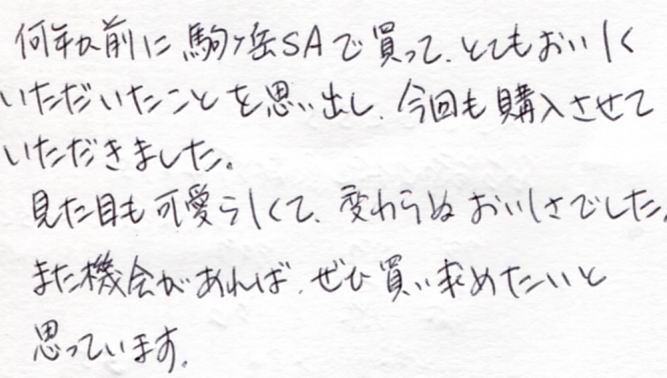 何年か前に駒ヶ岳SAで買って、とてもおいしく
いただいたことを思い出し、今回も購入させて
いただきました。
見た目も可愛らしくて、変わらぬおいしさでした。
また機会があれば、ぜひ買い求めたいと
思っています。